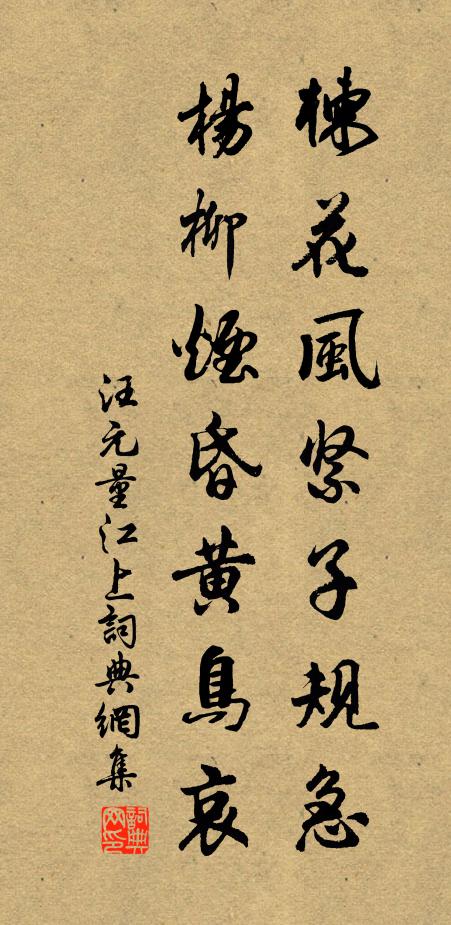 楝花風緊子規急
楊柳煙昏黄鳥哀
汪元量江上詞典網集
詞典網印